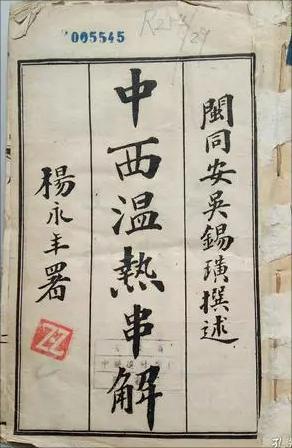 005545
R254/29
閩同安吳錫璜撰述
中西温熱串解
楊永年署